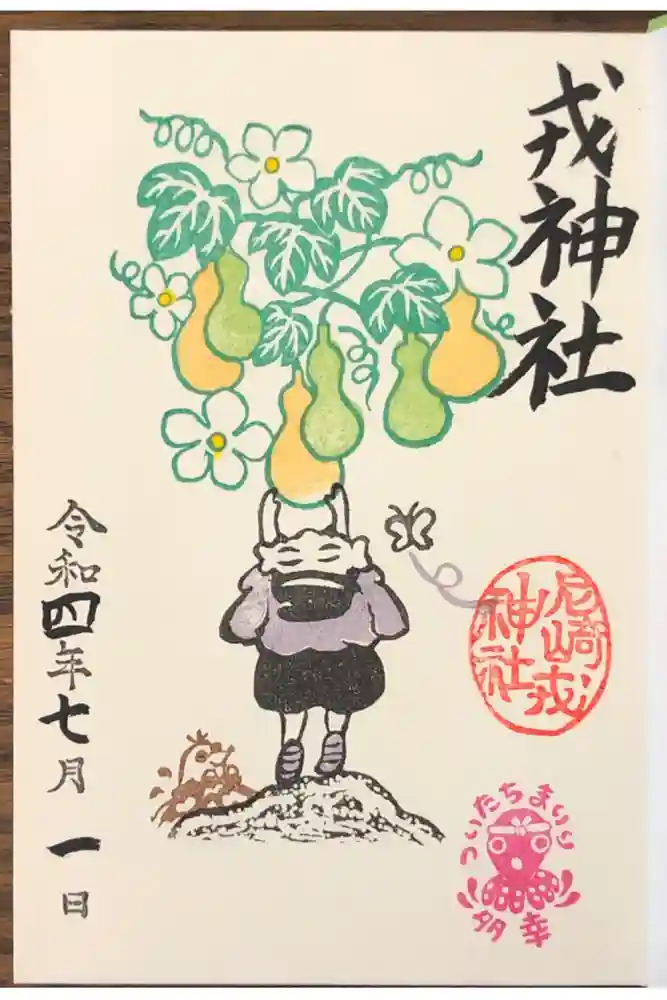 戎神社
尼崎戎
神社
ついたちまいり
多幸
令和四年七月一日